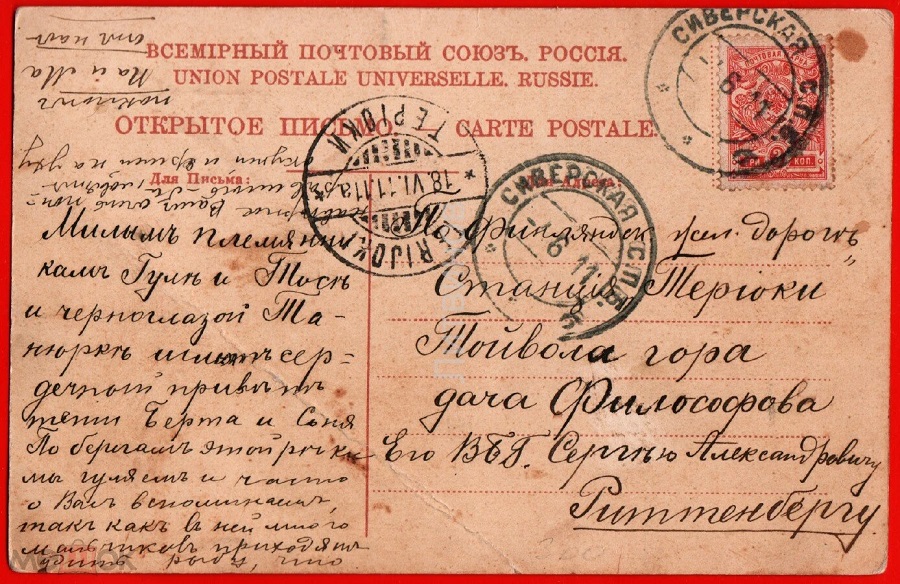 ВСЕМІРНЫЙ ПОЧТОВЫЙ СОЮЗЪ. РОССІЯ.
UNION POSTALE UNIVERSELLE. RUSSIE.
ОТКРЫТОЕ ПИСЬМО. — CARTE POSTALE.
Для Письма:
Для Адреса:
СИВЕРСКАЯ С.П.Б.
11
ТЕРІОКИ
18.VI.11
СИВЕРСКАЯ С.П.Б.
11
ПОЧТОВАЯ
КОП.
Милымъ племянни-
камъ Гулѣ и Тосѣ
и черноглазой Та-
нюркѣ шлютъ сер-
дечный привѣтъ
тети Берта и Соня
По берегамъ этой рѣчки
мы гуляемъ и часто
о Васъ вспоминаемъ,
такъ какъ въ ней много
мальчиковъ приходятъ
удить рыбу, что
навѣрное Вамъ
и ерши на уху
Па и Ма
По Финляндск жел. дорогѣ
Станція Теріоки
Тойвола гора
дача Философова
Его ВБГ. Сергѣю Александровичу
Риттенбергу